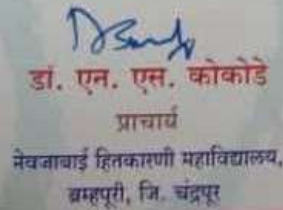 डॉ. एन. एस. कोकोडे
प्राचार्य
नेवजाबाई हितकारणी महाविद्यालय,
ब्रम्हपूरी, जि. चंद्रपूर